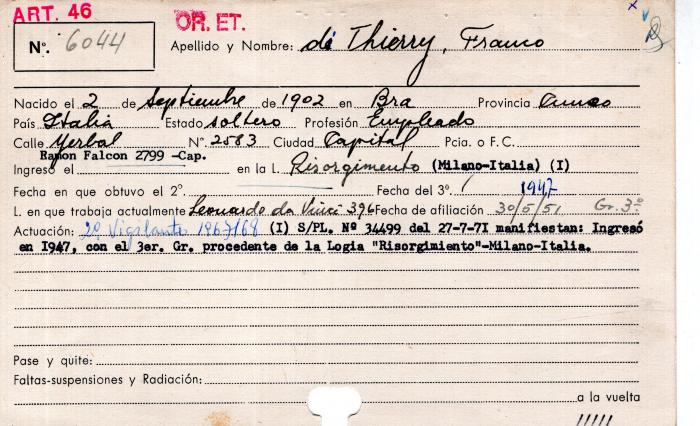 ART. 46
OR. ET.
N°. 6044
Apellido y Nombre: de Thierry, Franco
Nacido el 2 de Septiembre de 1902 en Bra Provincia Cuneo
País Italia Estado soltero Profesión Empleado
Calle Yerbal N° 2583 Ciudad Capital Pcia. o F.C.
Ramon Falcon 2799 -Cap.
Ingresó el en la L. Risorgimento (Milano-Italia) (I)
Fecha en que obtuvo el 2°. Fecha del 3°. 1947
L. en que trabaja actualmente Leonardo da Vinci 396 Fecha de afiliación 30/5/51 Gr. 3°
Actuación: 2° Vigilante 1967/68 (I) S/PL. Nº 34499 del 27-7-7I manifiestan: Ingresó
en I947, con el 3er. Gr. procedente de la Logia "Risorgimiento"-Milano-Italia.
Pase y quite:
Faltas-suspensiones y Radiación:
a la vuelta